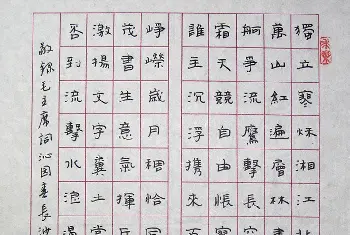 獨立寒秋湘江北
萬山紅遍層林
舸爭鷹擊長空
霜天競自由悵寥
誰主沉浮攜來百
崢嶸歲月稠恰同
茂書生意氣揮斥
激揚文字糞土當
否到流擊水浪
敬錄毛主席詞沁園春長沙